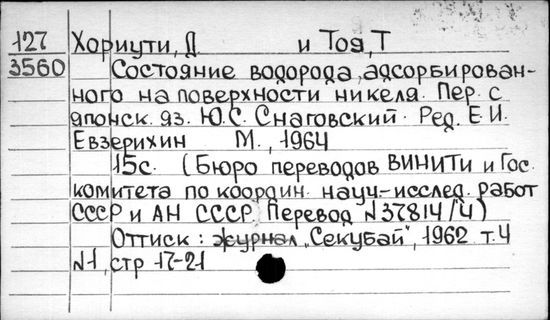 127 Хориути, Д и Тоя, Т
3560 Состояние водорода, адсорбирован-
ного на поверхности никеля. Пер. с
японск. яз. Ю.С. Снаговский. Ред. Е.И.
Евзерихин М., 1964
15с. (Бюро переводов ВИНИТИ и Гос.
комитета по координ. науч-исслед. работ
СССР и АН СССР. Перевод №37814/4)
Оттиск: журнал „Секубай", 1962 т.4
№1, стр 17-21